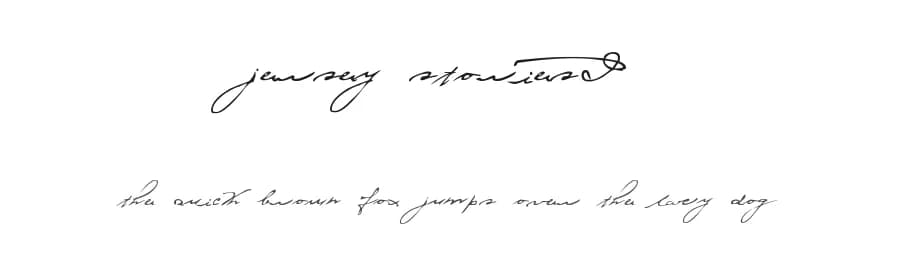 jersey stories
the quick brown fox jumps over the lazy dog